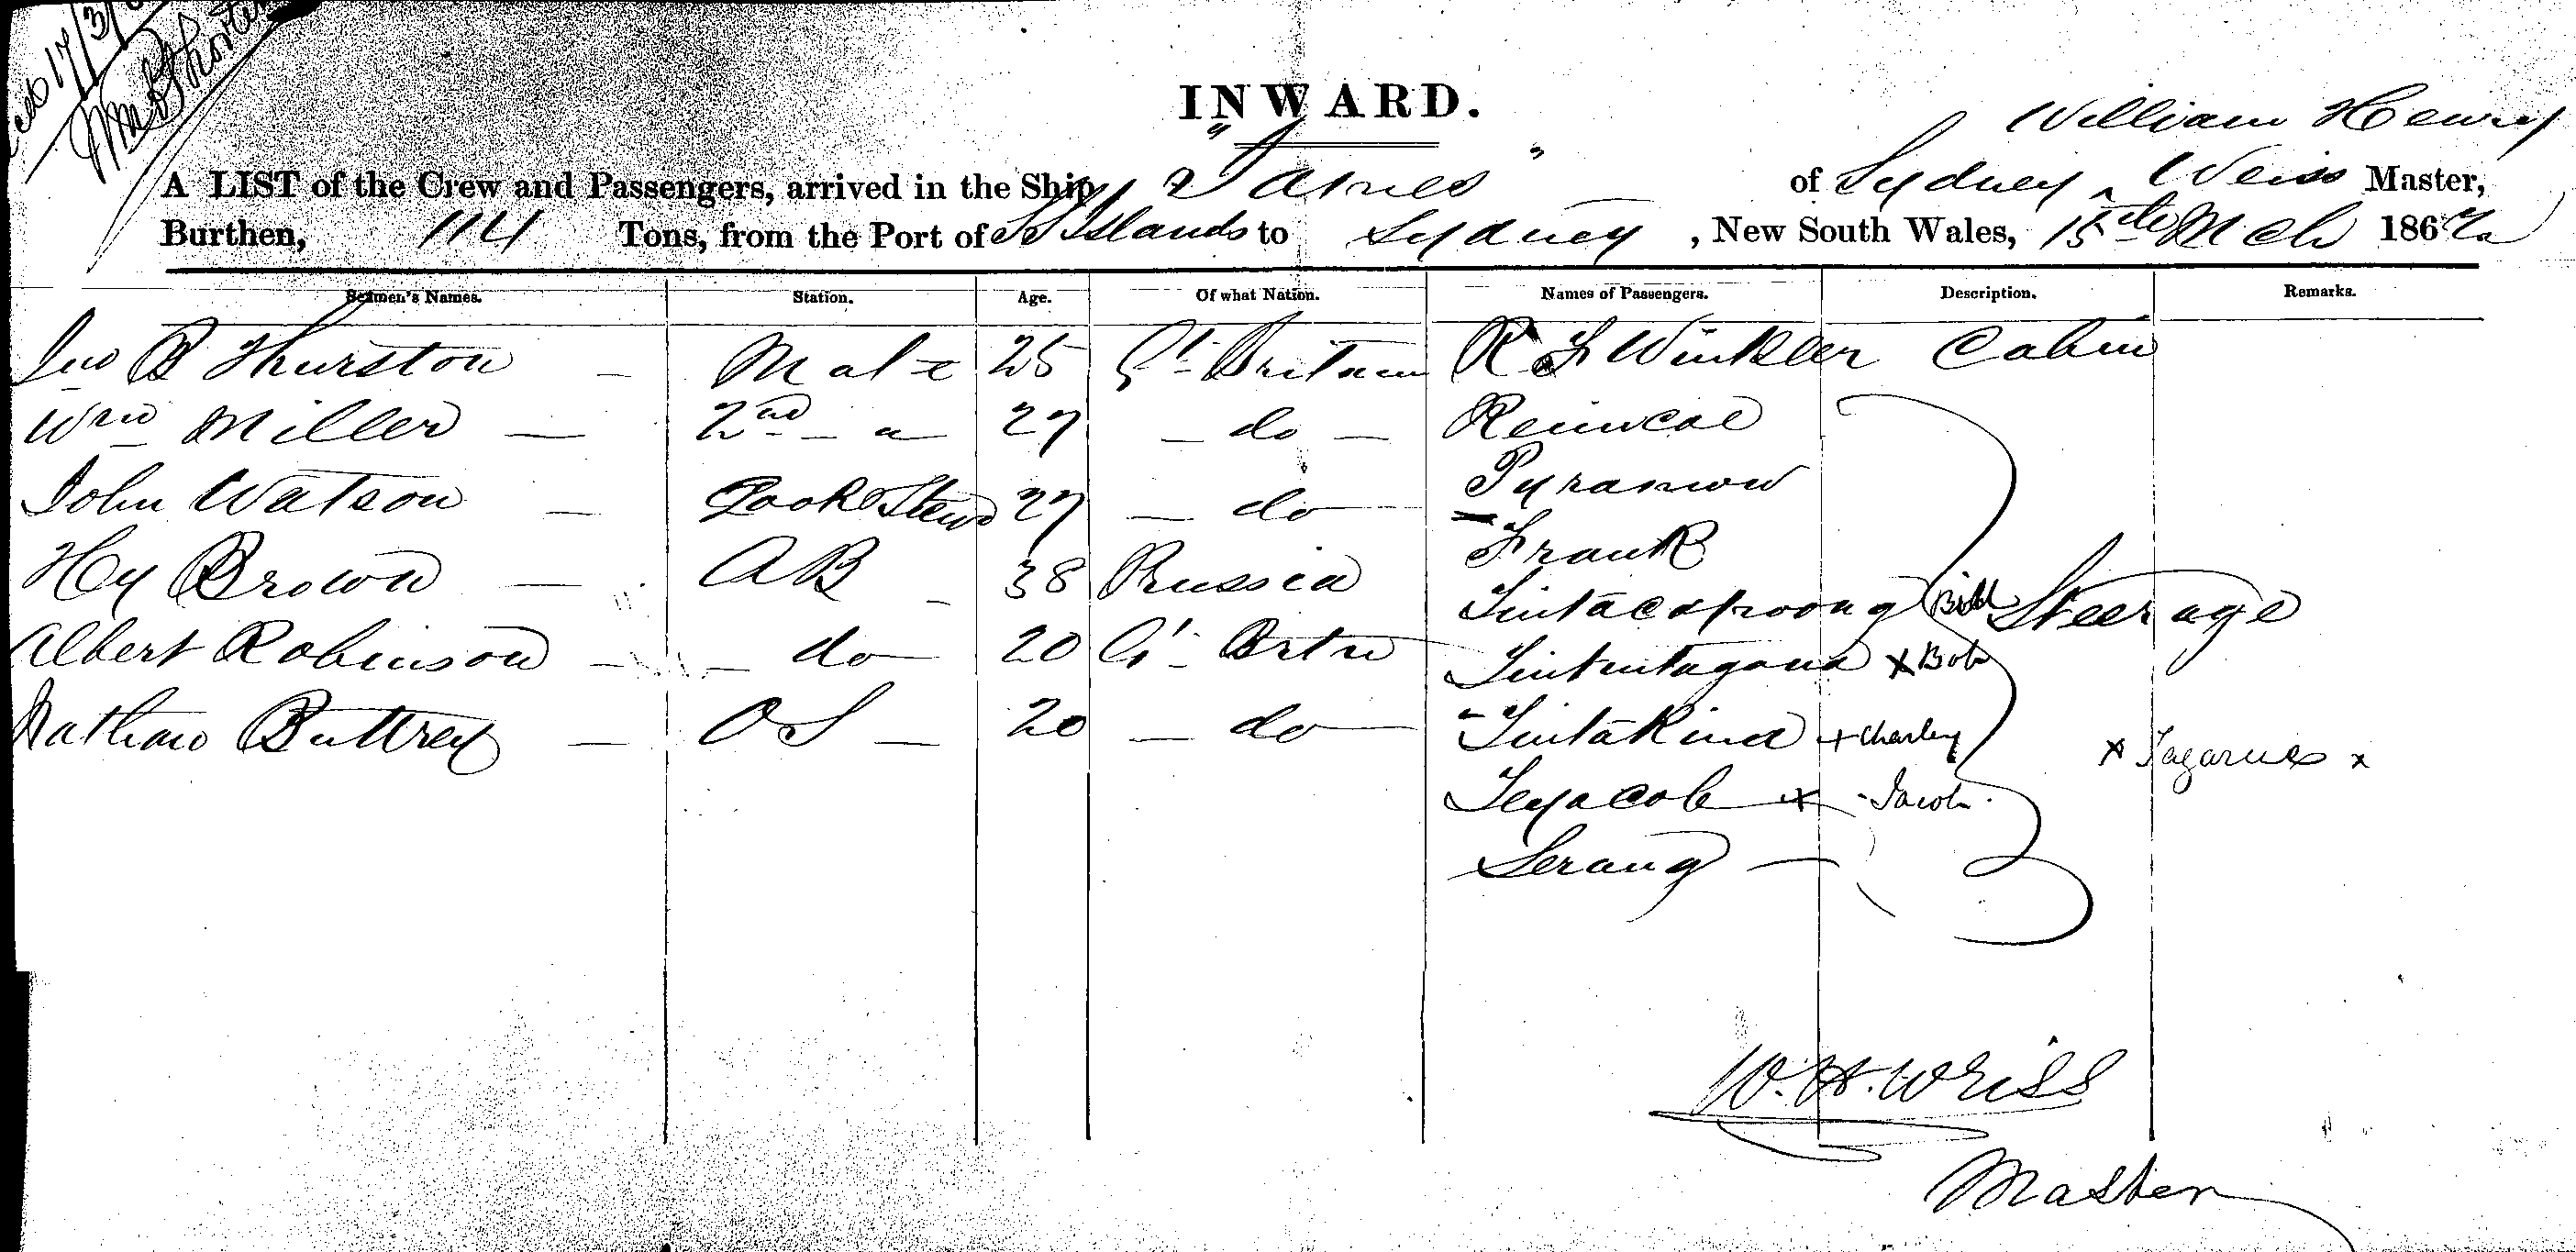 17/3/
INWARD.
William Henry
A LIST of the Crew and Passengers, arrived in the Ship "James" of Sydney, Weiss Master,
Burthen, 114 Tons, from the Port of S S Islands to Sydney, New South Wales, 15th Mch 186
Seamen's Names. Station. Age. Of what Nation. Names of Passengers. Description. Remarks.
Jno B Thurston — Mate 25 Gt Britain R F Winkler Cabin
Wm Miller — 2nd - " — 27 — do — Reinweal
John Watson — Cook & Stewd 27 — do — Pyranow
Hy Brown — AB — 38 Russia Frank
Tintacoproong Bill Steerage
Albert Robinson — — do — 20 Gt Brtn Tintintagana x Bob
Nathan Buttrey — OS — 20 — do — Tintakina + Charley
x x
Teyacob x - Jacob.
Serang —
W. H. Weiss
Master